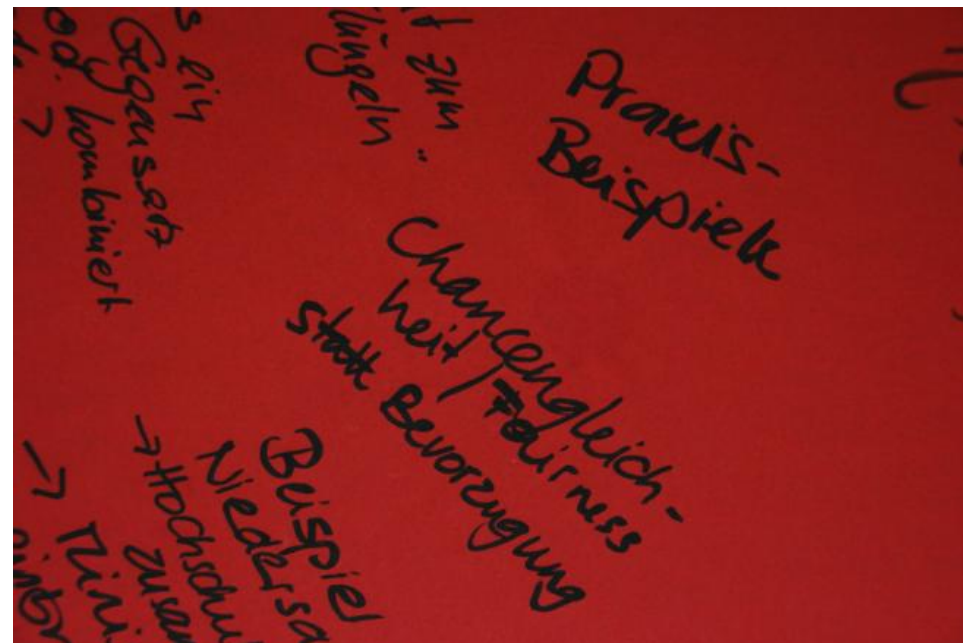 s ein
Gegensatz
od. kombiniert
zum
Praxis-
Beispiele
Chancengleich-
heit, Fairness
statt Bevorzugung
Beispiel
Niedersa
→ Hochschu
zusa
→ Mini